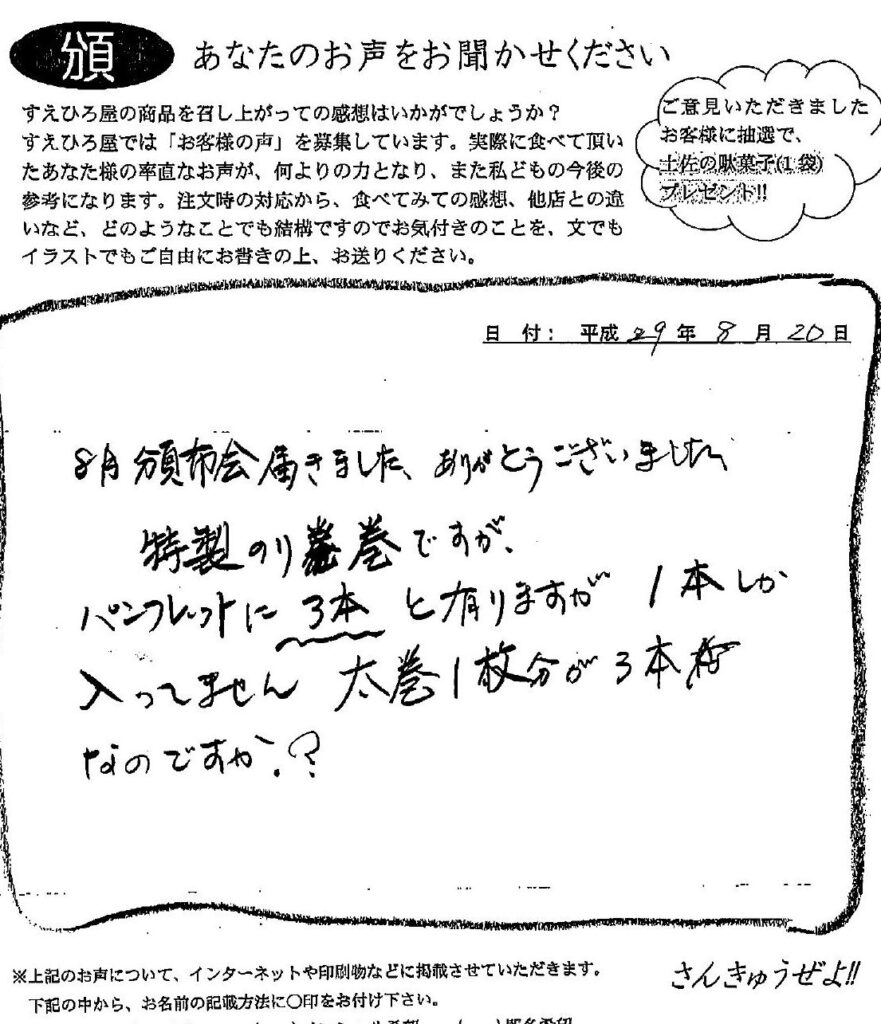 頒 あなたのお声をお聞かせください
すえひろ屋の商品を召し上がっての感想はいかがでしょうか？
すえひろ屋では「お客様の声」を募集しています。実際に食べて頂い
たあなた様の率直なお声が、何よりの力となり、また私どもの今後の
参考になります。注文時の対応から、食べてみての感想、他店との違
いなど、どのようなことでも結構ですのでお気付きのことを、文でも
イラストでもご自由にお書きの上、お送りください。
ご意見いただきました
お客様に抽選で、
土佐の駄菓子(1袋)
プレゼント!!
日 付： 平成 29 年 8 月 20 日
8月頒布会届きました、ありがとうございました、
特製のり巻ですが、
パンフレットに 3本 と有りますが 1本しか
入ってません 太巻1枚分が3本
なのですか。？
※上記のお声について、インターネットや印刷物などに掲載させていただきます。
下記の中から、お名前の記載方法に〇印をお付け下さい。
さんきゅうぜよ!!